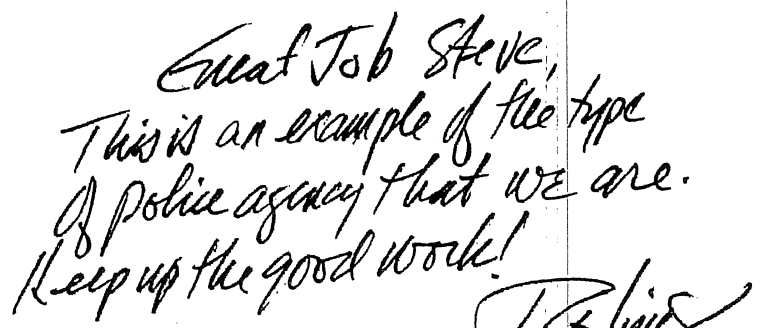 Great Job Steve,
This is an example of the type
of police agency that we are.
Keep up the good work!